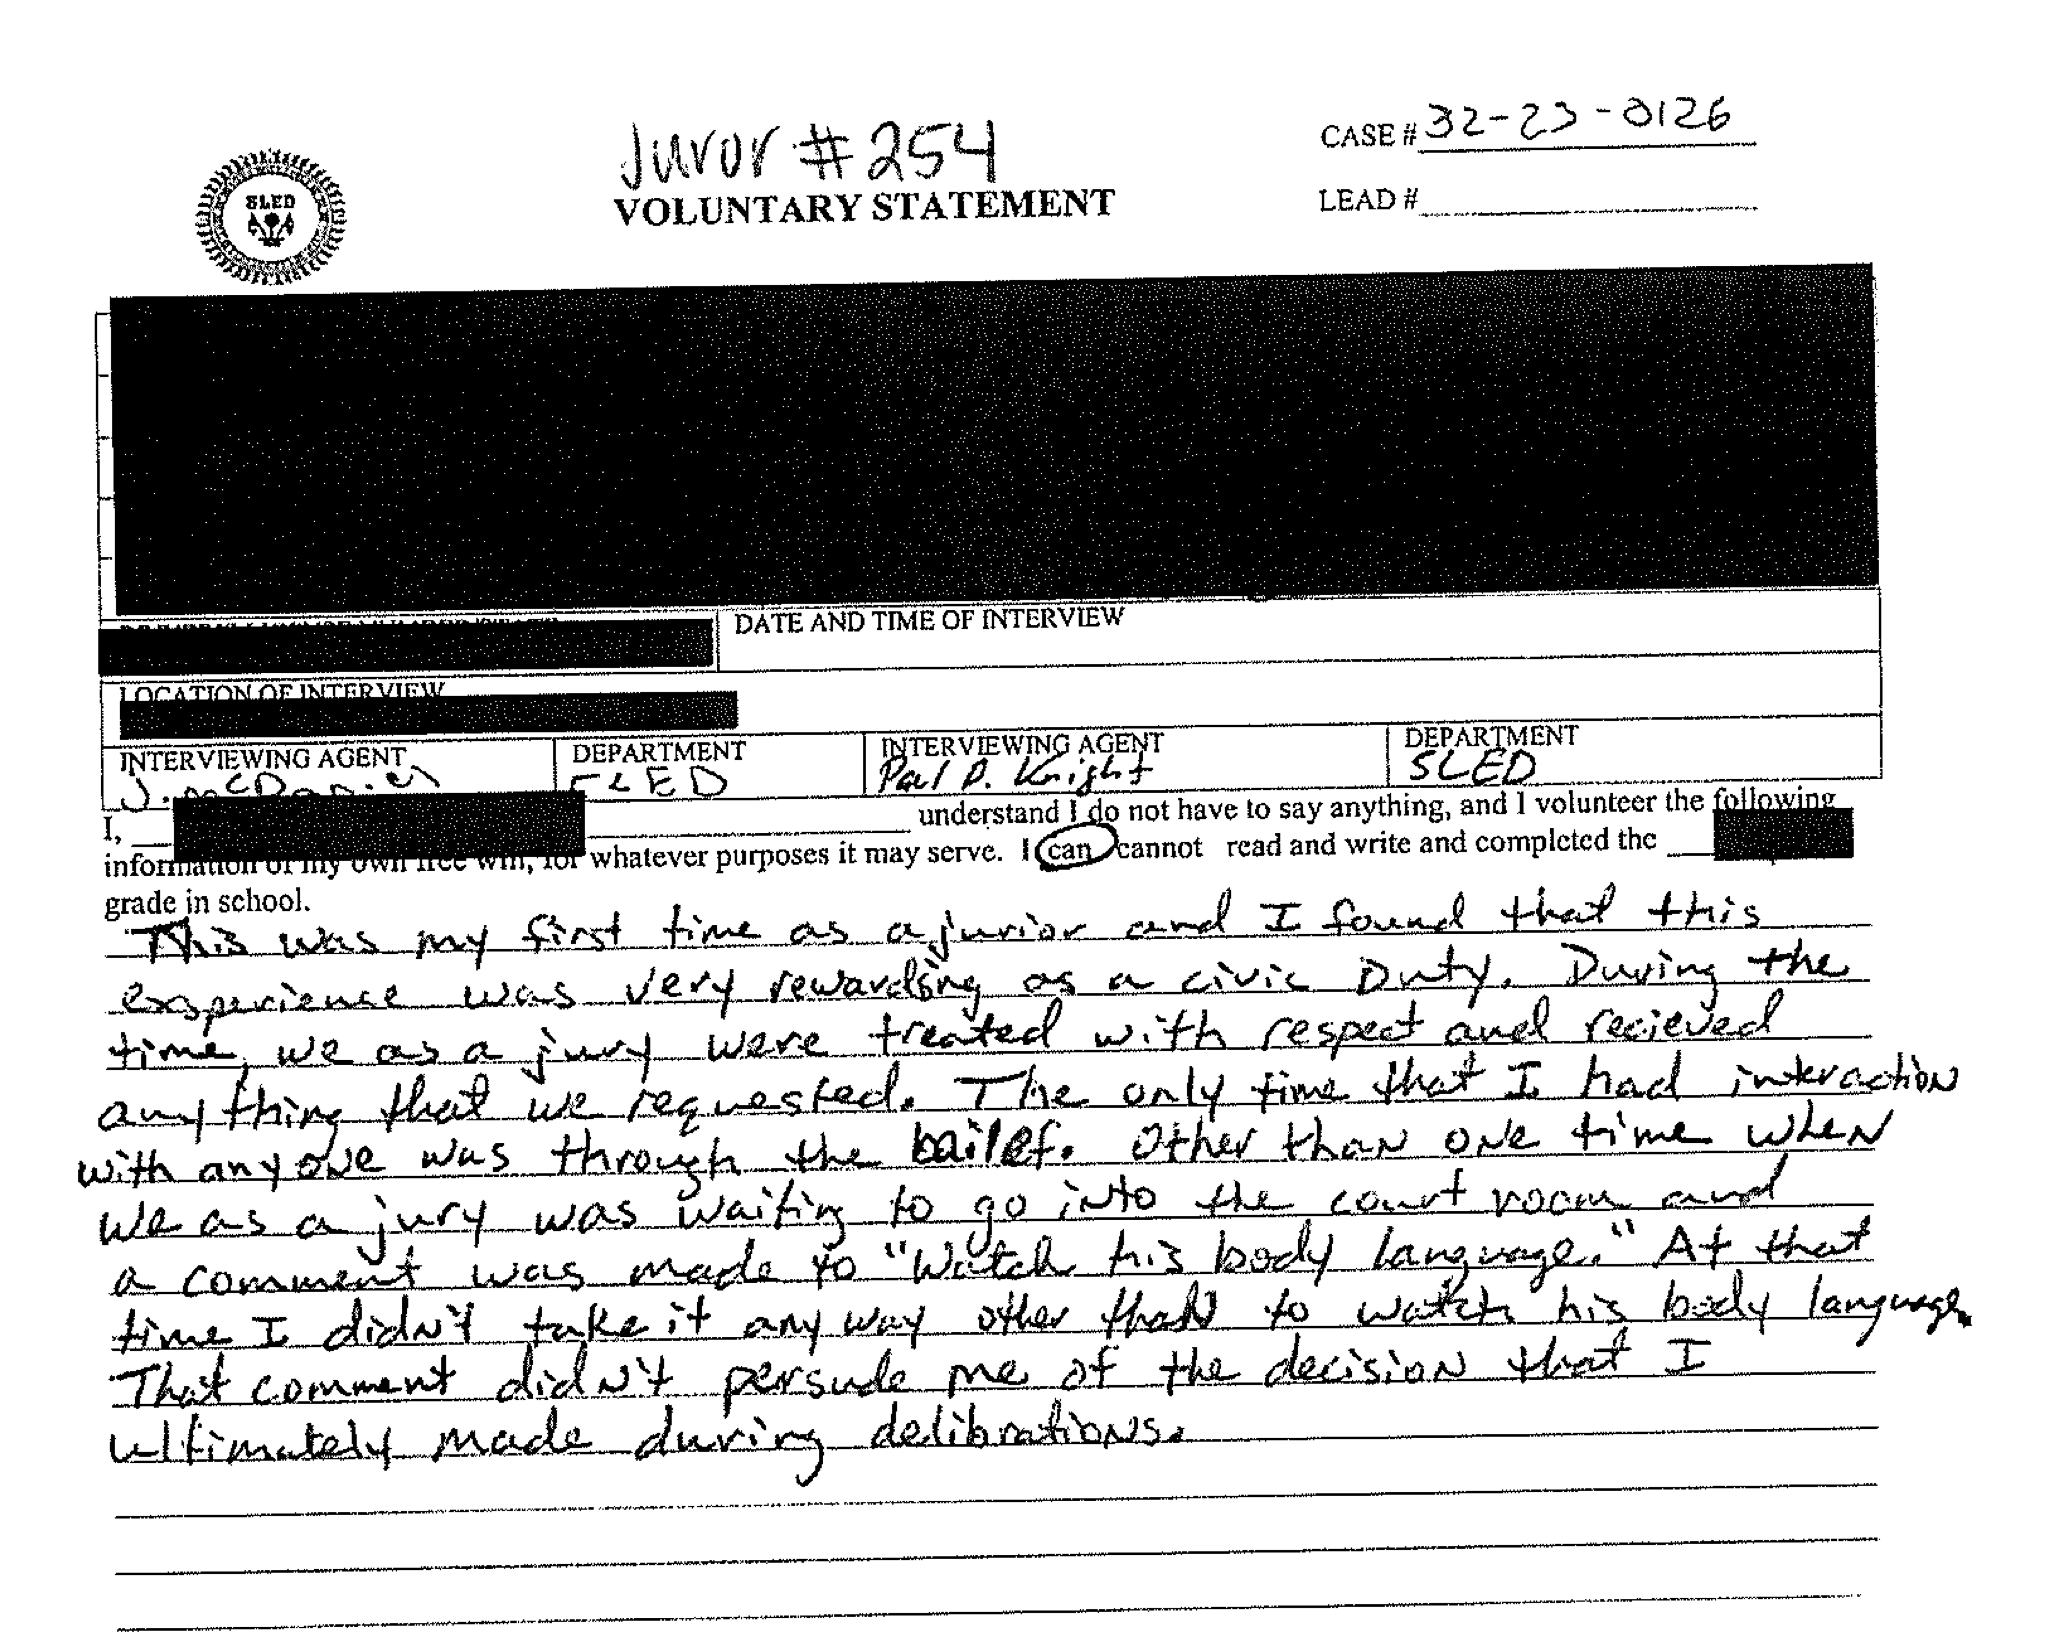 Juror #254
CASE # 32-23-0126
SLED
VOLUNTARY STATEMENT
LEAD #
DATE AND TIME OF INTERVIEW
LOCATION OF INTERVIEW
INTERVIEWING AGENT DEPARTMENT INTERVIEWING AGENT DEPARTMENT
J. McDaniel SLED Paul D. Knight SLED
I, understand I do not have to say anything, and I volunteer the following
information of my own free will, for whatever purposes it may serve. I can cannot read and write and completed the
grade in school.
This was my first time as a jurior and I found that this
exsperience was very rewarding as a civic Duty. During the
time, we as a jury were treated with respect and recieved
anything that we requested. The only time that I had interaction
with anyone was through the bailef. Other than one time when
we as a jury was waiting to go into the court room and
a comment was made to "Watch his body language." At that
time I didn't take it any way other than to watch his body language.
That comment didn't persude me of the decision that I
ultimately made during delibrations.